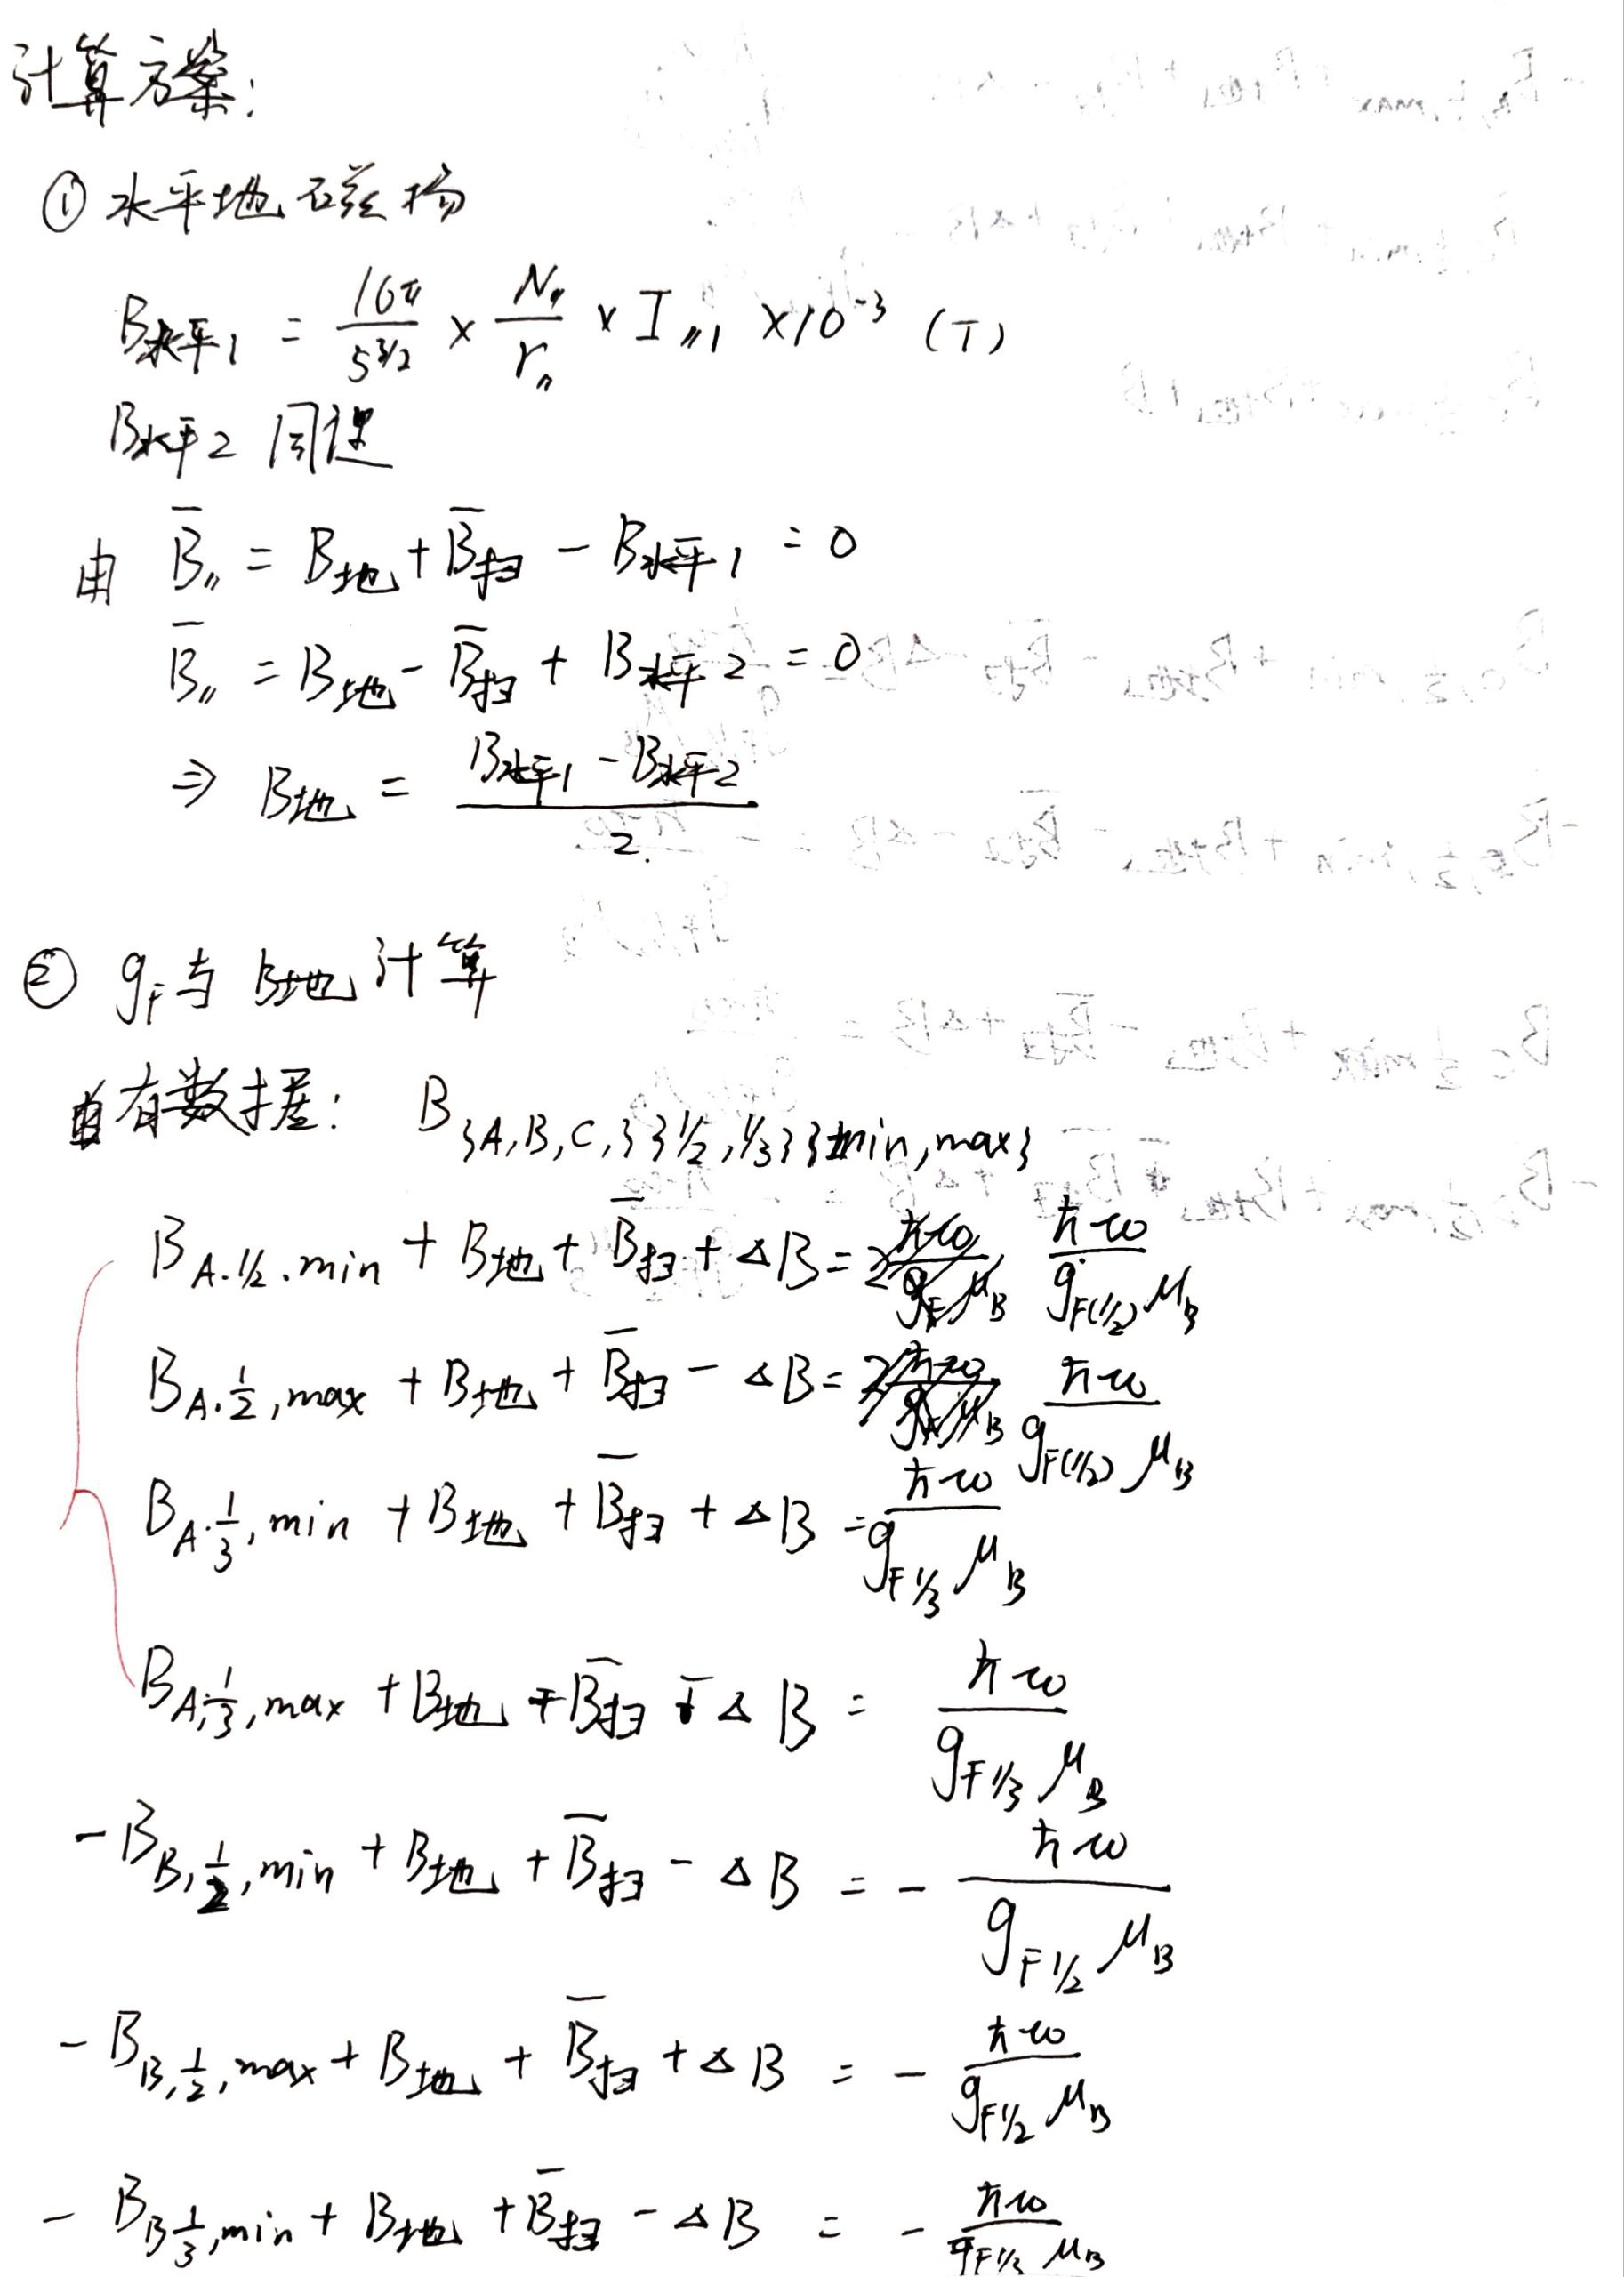 计算方案:
① 水平地磁场
B水平1 = 16π/5^{3/2} × N〃/r〃 × I〃1 ×10^{-3} (T)
B水平2 同理
由 B̄〃 = B地 + B̄扫 - B水平1 = 0
B̄〃 = B地 - B̄扫 + B水平2 = 0
⇒ B地 = (B水平1 - B水平2)/2.
② g_F与 B地 计算
有数据: B_{{A,B,C,}{1/2,1/3}{min,max}}
B_{A.1/2.min} + B地 + B̄扫 + ΔB = ħω/(g_{F(1/2)} μ_B)
B_{A.1/2,max} + B地 + B̄扫 - ΔB = ħω/(g_{F(1/2)} μ_B)
B_{A.1/3,min} + B地 + B̄扫 + ΔB = ħω/(g_{F1/3} μ_B)
B_{A.1/3,max} + B地 + B̄扫 - ΔB = ħω/(g_{F1/3} μ_B)
- B_{B,1/2,min} + B地 + B̄扫 - ΔB = - ħω/(g_{F1/2} μ_B)
- B_{B,1/2,max} + B地 + B̄扫 + ΔB = - ħω/(g_{F1/2} μ_B)
- B_{B1/3,min} + B地 + B̄扫 - ΔB = - ħω/(g_{F1/3} μ_B)